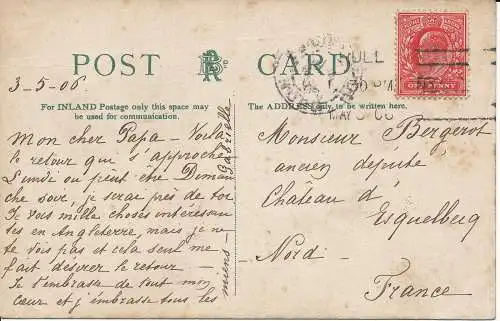 POST CARD
3-5-06
For INLAND Postage only this space may
be used for communication.
The ADDRESS only, to be written here.
HULL
30 PM
MAY 3 06
ONE PENNY
Mon cher Papa - Voila
le retour qui s'approche
Lundi ou peut être Diman
che soir, je serai près de toi
Je vois mille choses intéressan
tes en Angleterre, mais je ne
te vois pas et cela seul me
fait desirer le retour -
Je t'embrasse de tout mon
cœur et j'embrasse tous les
miens - Gabrielle
Monsieur Bergerot
ancien député
Château d'
Esquelbecq
Nord -
France